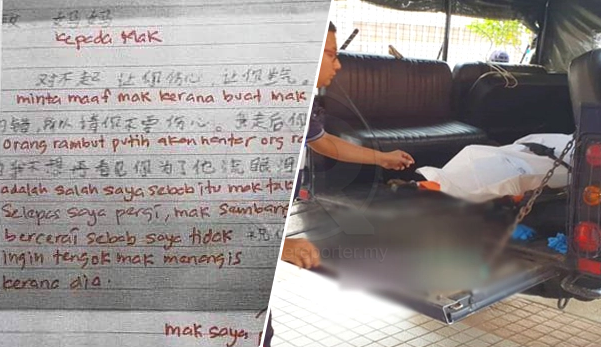 妈妈
kepada Mak
对不起 让你伤心，让你生气。
minta maaf mak kerana buat mak
错，所以请你不要伤心。 走后你
Orang rambut putih akan hantar org
不想再看见你为了他流眼泪
adalah salah saya sebab itu mak tak
Selepas saya pergi, mak sambung
bercerai sebab saya tidak
ingin tengok mak menangis
kerana dia.
mak saya
reporter.my